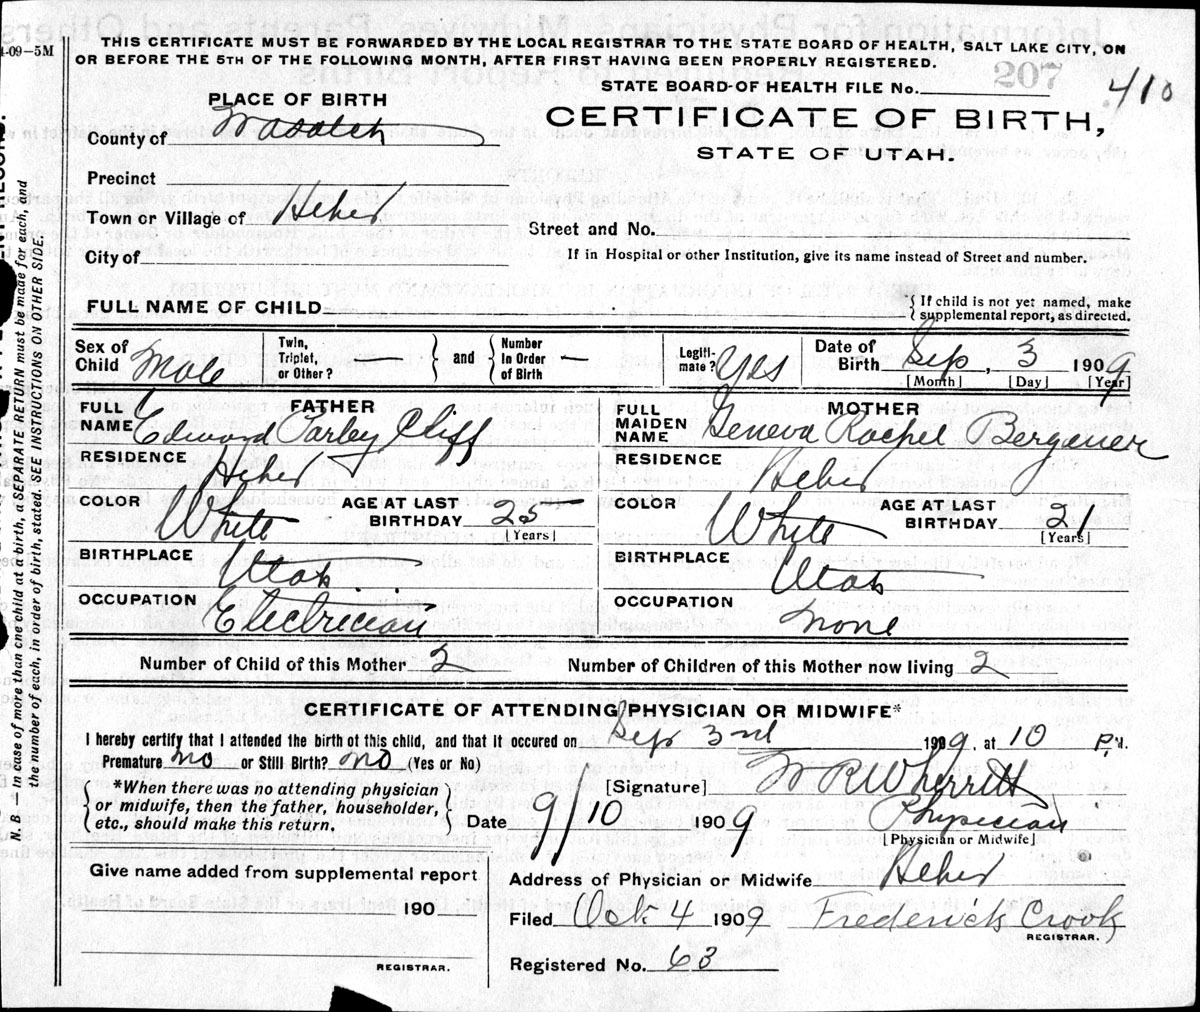 4-09-5M
THIS CERTIFICATE MUST BE FORWARDED BY THE LOCAL REGISTRAR TO THE STATE BOARD OF HEALTH, SALT LAKE CITY, ON
OR BEFORE THE 5TH OF THE FOLLOWING MONTH, AFTER FIRST HAVING BEEN PROPERLY REGISTERED.
207
410
STATE BOARD OF HEALTH FILE No.
PLACE OF BIRTH
County of Wasatch
CERTIFICATE OF BIRTH,
STATE OF UTAH.
Precinct
Town or Village of Heber
Street and No.
City of
If in Hospital or other Institution, give its name instead of Street and number.
FULL NAME OF CHILD
{ If child is not yet named, make
supplemental report, as directed.
Sex of Child Male
Twin, Triplet, or Other?
} and {
Number in Order of Birth —
Legitimate? Yes
Date of Birth Sep, 3 1909
[Month] [Day] [Year]
FULL NAME FATHER
Edward Parley Cliff
FULL MAIDEN NAME MOTHER
Geneva Rachel Bergener
RESIDENCE Heber
RESIDENCE Heber
COLOR White AGE AT LAST BIRTHDAY 25 [Years]
COLOR White AGE AT LAST BIRTHDAY 21 [Years]
BIRTHPLACE Utah
BIRTHPLACE Utah
OCCUPATION Electrician
OCCUPATION none
Number of Child of this Mother 2 Number of Children of this Mother now living 2
CERTIFICATE OF ATTENDING PHYSICIAN OR MIDWIFE*
I hereby certify that I attended the birth of this child, and that it occured on Sep 3rd 1909, at 10 P.M.
Premature? no or Still Birth? no (Yes or No)
*When there was no attending physician
or midwife, then the father, householder,
etc., should make this return.
[Signature] W R Wherritt
Date 9/10 1909 Physician
[Physician or Midwife]
Give name added from supplemental report
Address of Physician or Midwife Heber
190
Filed Oct 4 1909 Frederick Crook
REGISTRAR.
REGISTRAR.
Registered No. 63
N.B.—In case of more than one child at a birth, a SEPARATE RETURN must be made for each, and
the number of each, in order of birth, stated. SEE INSTRUCTIONS ON OTHER SIDE.